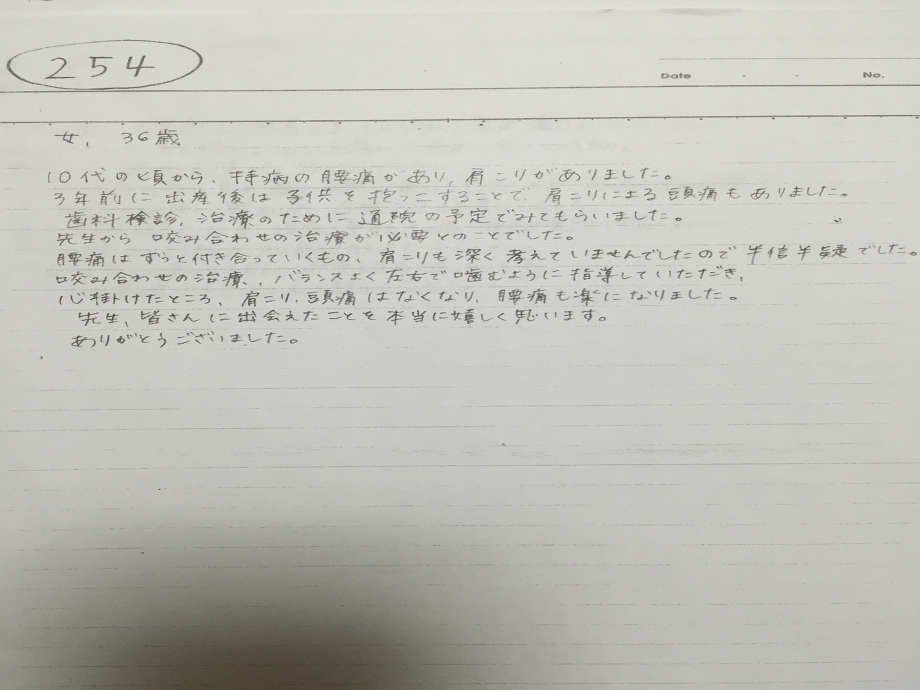 254
Date ・ ・ No.
女, 36歳
10代の頃から、持病の腰痛があり、肩こりがありました。
3年前に出産後は子供を抱っこすることで、肩こりによる頭痛もありました。
歯科検診、治療のために、通院の予定でみてもらいました。
先生から 咬み合わせの治療が必要とのことでした。
腰痛はずっと付き合っていくもの、肩こりも深く考えていませんでしたので半信半疑でした。
咬み合わせの治療、バランスよく左右で噛むように指導していただき、
心掛けたところ、肩こり、頭痛はなくなり、腰痛も楽になりました。
先生、皆さんに出会えたことを本当に嬉しく思います。
ありがとうございました。